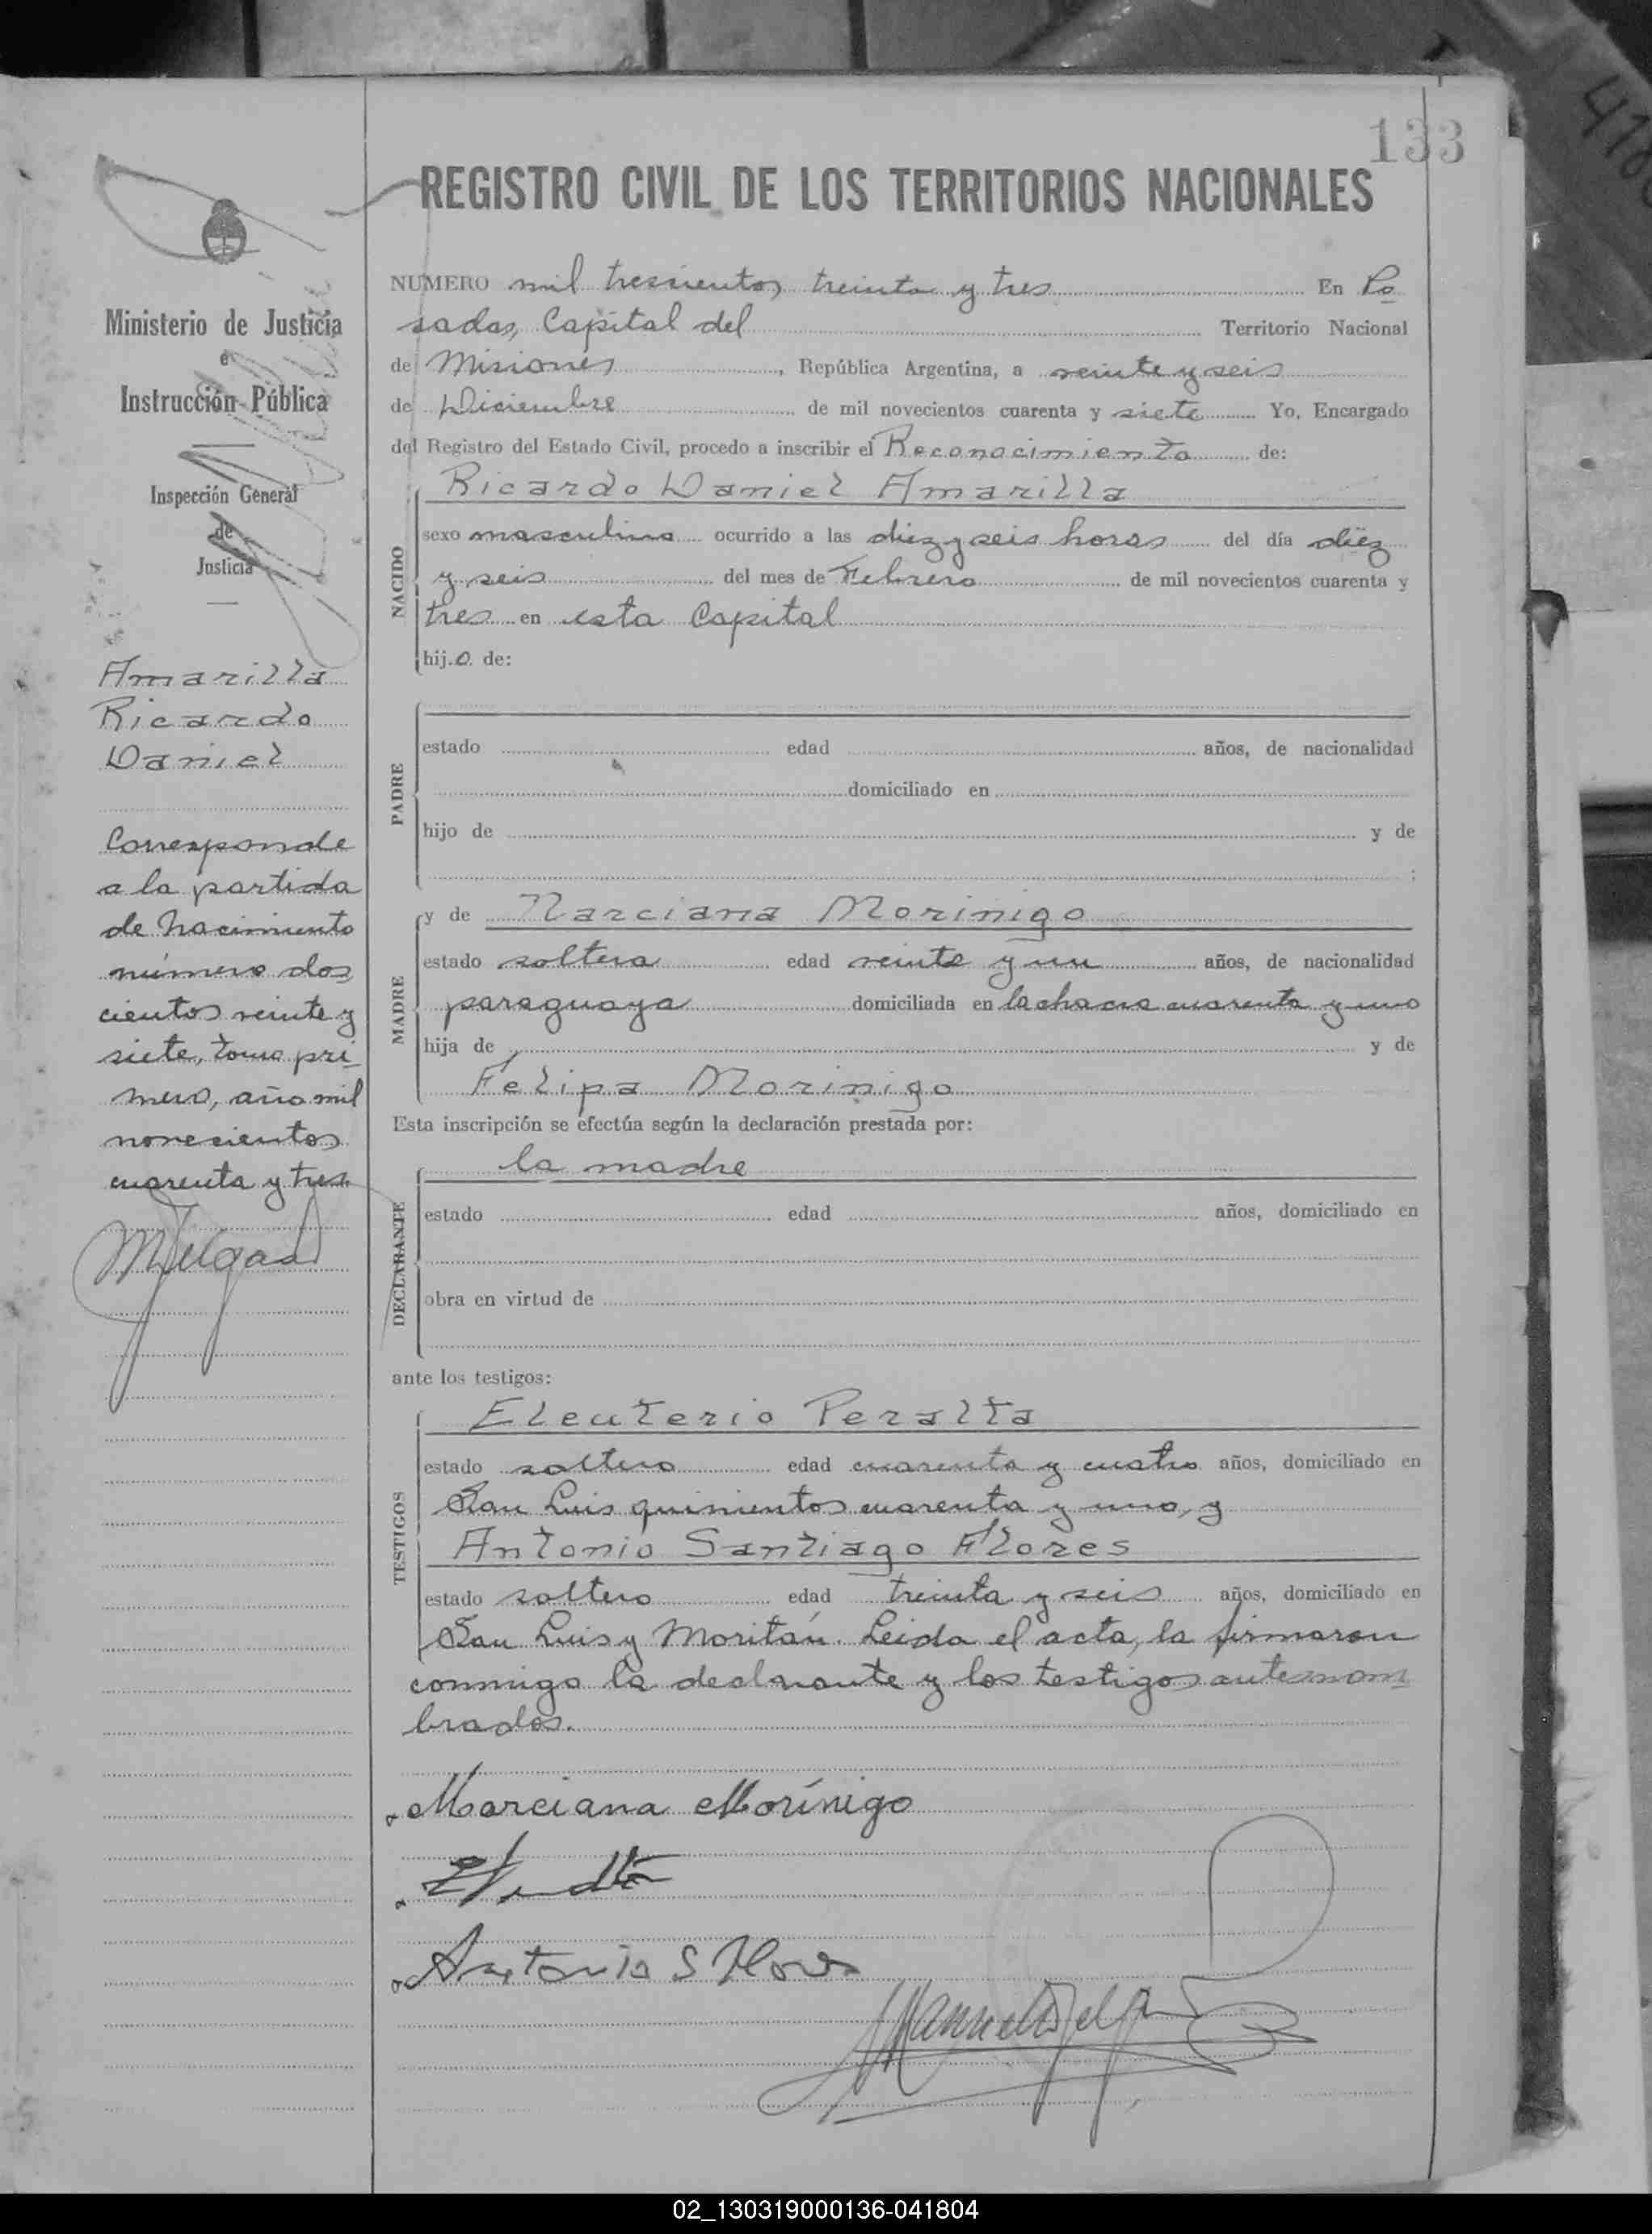 133
REGISTRO CIVIL DE LOS TERRITORIOS NACIONALES
Ministerio de Justicia
e
Instrucción Pública
Inspección General
de
Justicia
Amarilla
Ricardo
Daniel
Corresponde
a la partida
de nacimiento
número dos
cientos veinte y
siete, tomo pri
mero, año mil
novecientos
cuarenta y tres
NUMERO mil trescientos treinta y tres En Po
sadas, Capital del Territorio Nacional
de Misiones, República Argentina, a veinte y seis
de Diciembre de mil novecientos cuarenta y siete Yo, Encargado
del Registro del Estado Civil, procedo a inscribir el Reconocimiento de:
NACIDO
Ricardo Daniel Amarilla
sexo masculino ocurrido a las diez y seis horas del día diez
y seis del mes de Febrero de mil novecientos cuarenta y
tres en esta Capital
hij.o. de:
PADRE
estado edad años, de nacionalidad
domiciliado en
hijo de y de
;
MADRE
y de Narciana Morinigo
estado soltera edad veinte y un años, de nacionalidad
paraguaya domiciliada en la chacra cuarenta y uno
hija de y de
Felipa Morinigo
Esta inscripción se efectúa según la declaración prestada por:
DECLARANTE
la madre
estado edad años, domiciliado en
obra en virtud de
ante los testigos:
TESTIGOS
Eleuterio Peralta
estado soltero edad cuarenta y cuatro años, domiciliado en
San Luis quinientos cuarenta y uno, y
Antonio Santiago Flores
estado soltero edad treinta y seis años, domiciliado en
San Luis y Moritán. Leida el acta, la firmaron
conmigo la declarante y los testigos antenom
brados.
Marciana Morínigo
Antonio S Flores
02_130319000136-041804